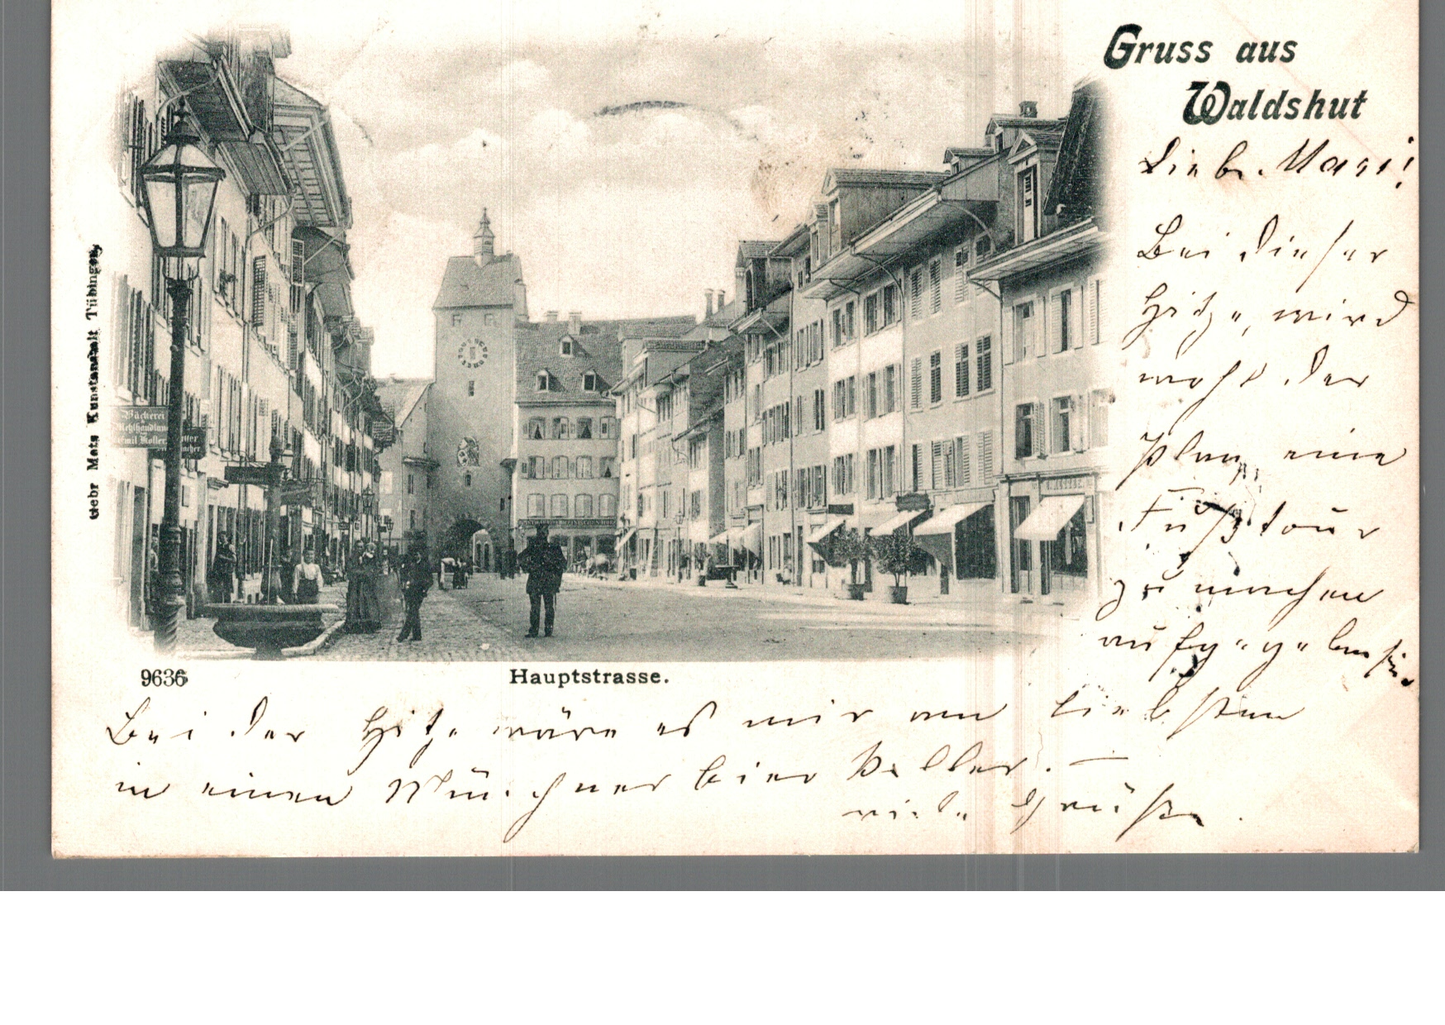 Gruss aus
Waldshut
Liebe Mari!
Bei dieser
Hitze, wird
wohl der
Plan, eine
Fußtour
zu machen
aufgegeben sein
Gebr Metz Kunstanstalt Tübingen
Bäckerei
Mehlhandlung
Emil Koller
9636
Hauptstrasse.
Bei der Hitze wäre es mir am liebsten
in einen Münchner bier Keller. —
viele Grüße.